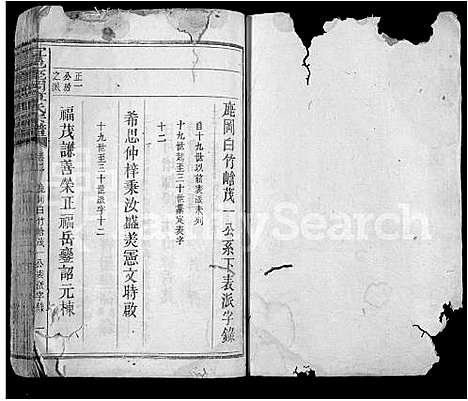 鹿岡白竹鎗茂一公系下表派字錄
自十九世以前表派未列
十九世起至三十世彙定表字
十二
希思仲梓秉汝盛美憲文時啟
十九世至三十世派字十二
福茂謙善榮正福岳鑾韶元棟
正一
公房
之派
鹿岡白竹鎗茂一公表派字錄
FamilySearch